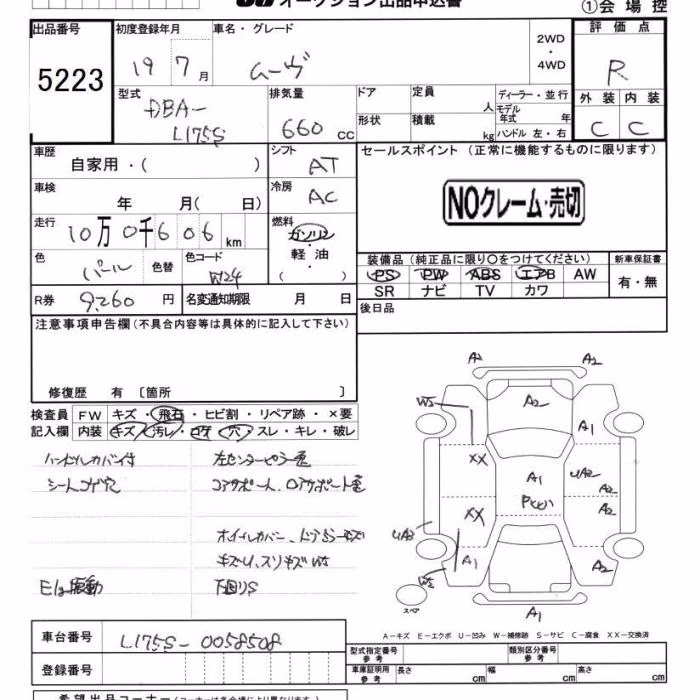 オークション出品申込書
①会場控
出品番号
5223
初度登録年月
19 7月
車名・グレード
ムーヴ
2WD・4WD
評価点
R
型式
DBA-L175S
排気量
660 cc
ドア
形状
定員 人
積載 kg
ディーラー・並行
モデル年式 年
ハンドル 左・右
外装 内装
C C
車歴
自家用・( )
シフト
AT
セールスポイント (正常に機能するものに限ります)
NOクレーム・売切
車検
年 月( 日)
冷房
AC
走行
10万0千606 km
燃料
ガソリン・軽油・( )
色
パール
色替
色コード
W24
装備品 (純正品に限り○をつけてください)
PS PW ABS エアB AW
SR ナビ TV カワ
新車保証書
有・無
R券 9,260円
名変通知期限 月 日
後日品
注意事項申告欄(不具合内容等は具体的に記入して下さい)
修復歴 有 〔箇所 〕
検査員記入欄
FW キズ・飛石・ヒビ割・リペア跡・×要
内装 キズ・汚レ・コゲ・穴・スレ・キレ・破レ
ハンドルカバー付
シートコゲ穴
左センターピラー歪
コアサポート、ロアサポート歪
ホイルカバー、ドアミラーキズ
E/G振動
下回りS
A2 A2
W5 A2 A1
XX A1 UA2 A2
Pヘコ
XX A2
UA3
A1 A2
W2
スペア
A1
A-キズ E-エクボ U-凹み W-補修跡 S-サビ C-腐食 XX-交換済
車台番号
L175S-0058508
登録番号
型式指定番号 参考
類別区分番号 参考
車庫証明用 参考
長さ cm
幅 cm
高さ cm
希望出品コーナー